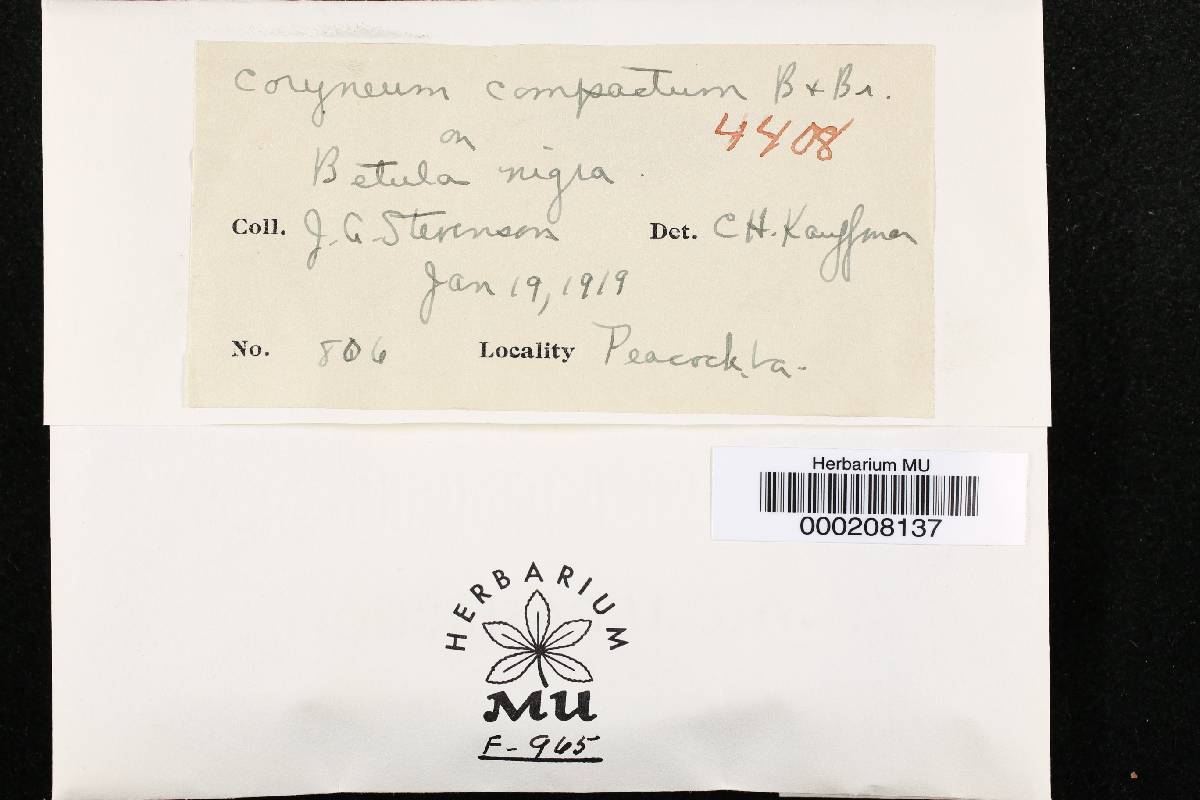 Coryneum compactum B & Br.
4408
on
Betula nigra
Coll. J. A. Stevenson Det. C H. Kauffman
Jan 19, 1919
No. 806 Locality Peacock,
Herbarium MU
000208137
HERBARIUM
MU
F-965